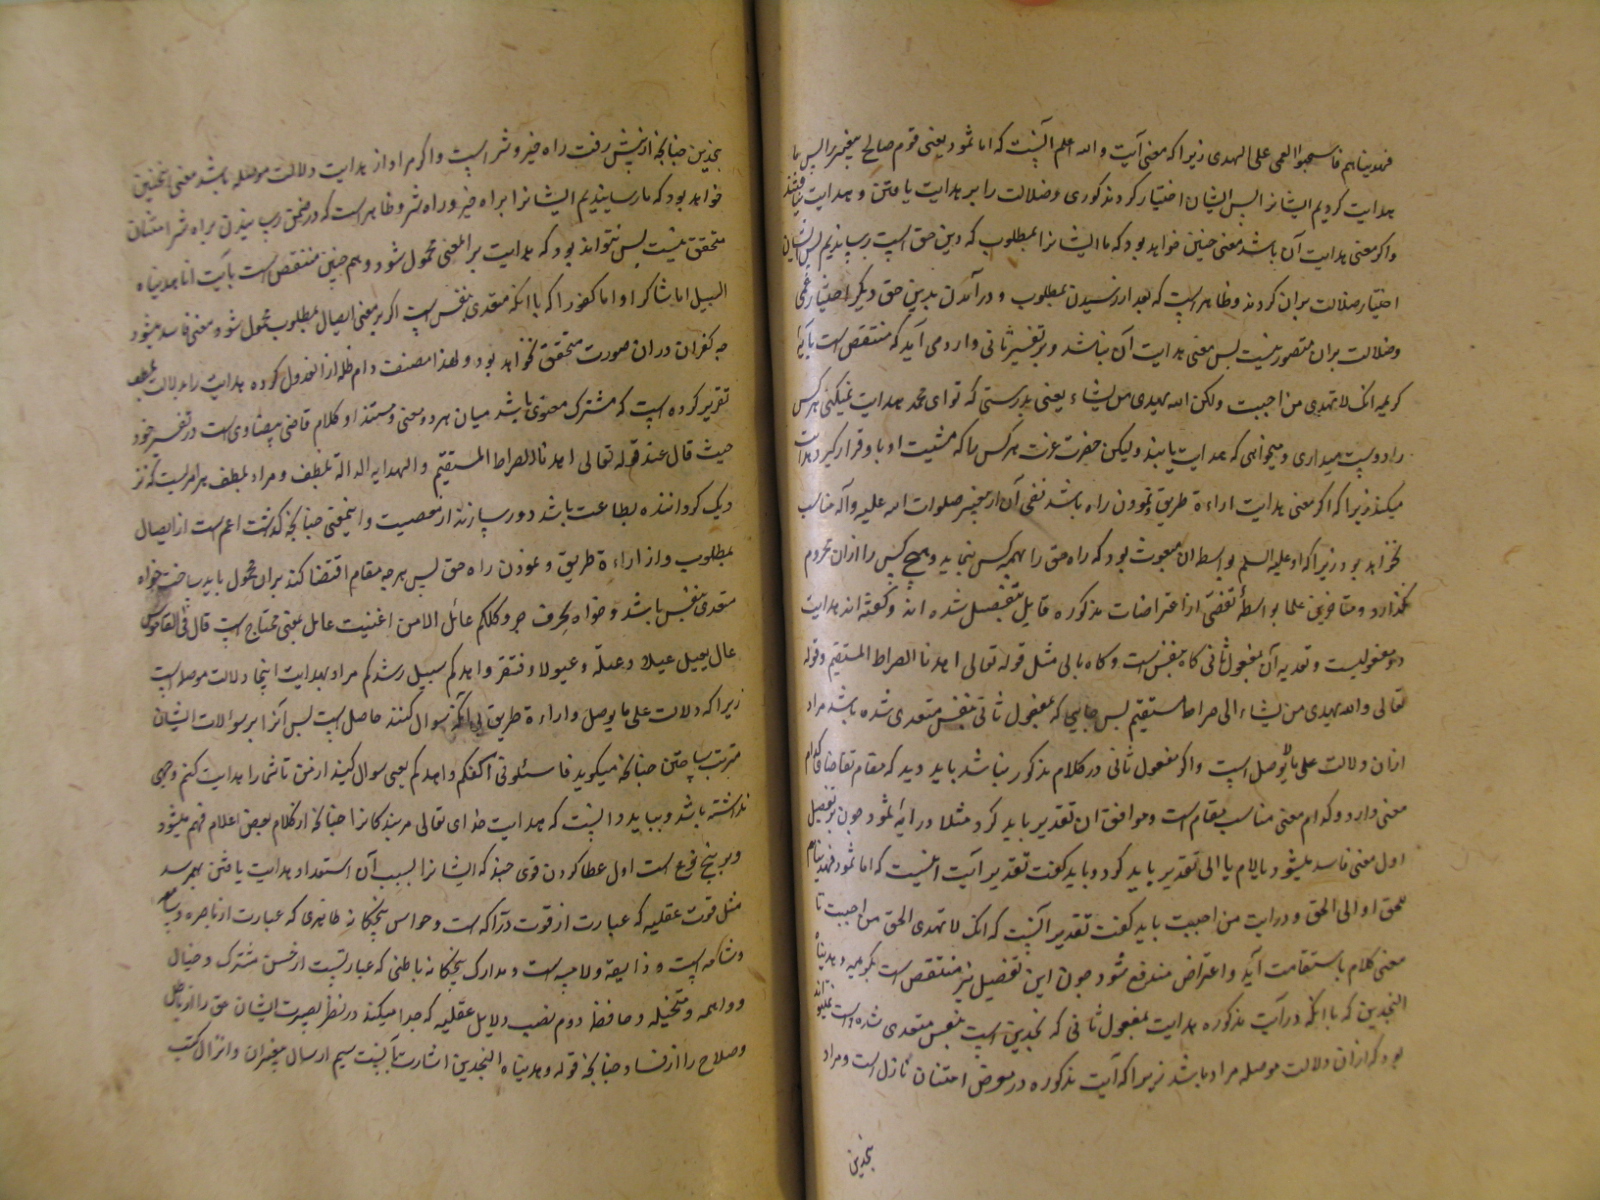 فهدیناهم فاستحبوا العمی علی الهدی زیرا که معنی آیت و الله اعلم آنست که اما ثمود یعنی قوم صالح پیغمبر را پس ما
هدایت کردیم ایشانرا پس ایشان اختیار کردند کوری و ضلالت را بر هدایت یافتن و هدایت نیافتند
و اکر معنی هدایت آن باشد معنی چنین خواهد بود که ما ایشانرا بمطلوب که دین حق است رسانیدیم پس ایشان
اختیار ضلالت بران کردند و ظاهر است که بعد از رسیدن بمطلوب و درآمدن بدین حق دیکر اختیار عمی
و ضلالت بران متصور نیست پس معنی هدایت آن نباشد و بر تفسیر ثانی وارد می آید که منتقض است بآیه
کریمه انک لا تهدی من احببت ولکن الله یهدی من یشاء یعنی بدرستی که تو ای محمد هدایت نمیکنی هر کس
را دوست میداری و میخواهی که هدایت یابند ولیکن حضرت عزت هر کس را که مشیت او باو قرار کیرد هدایت
میکند زیرا که اکر معنی هدایت اراءة طریق و نمودن راه باشد نفی آن از پیغمبر صلوات الله علیه و آله مناسب
نخواهد بود زیرا که او علیه السلم بواسطه آن مبعوث بود که راه حق را بهمه کس بنماید و هیچ کس را ازان محروم
نکذارد و متاخرین علما بواسطهٔ تفصّی از اعتراضات مذکوره قایل بتفصیل شده اند و کفته اند هدایت
دو مفعولیست و تعدیه آن بمفعول ثانی کاه بنفس است و کاه بالی مثل قوله تعالی اهدنا الصراط المستقیم و قوله
تعالی و الله یهدی من یشاء الی صراط مستقیم پس جایی که بمفعول ثانی بنفس متعدی شده باشد مراد
ازان دلالت علی ما یوصل است و اکر مفعول ثانی در کلام مذکور نباشد باید دید که مقام تقاضا کدام
معنی دارد و کدام معنی مناسب مقام است و موافق آن تقدیر باید کرد مثلا در آیه ثمود چون بر تفصیل
اول معنی فاسد میشود بالام یا الی تقدیر باید کرد و باید کفت تقدیر آیت اینست که اما ثمود فهدیناهم
للحق او الی الحق و در آیت من احببت باید کفت تقدیر آنست که انک لا تهدی الحق من احببت تا
معنی کلام باستقامت آید و اعتراض مندفع شود چون این تفصیل نیز منتقض است بکریمه و هدیناه
النجدین که با آنکه در آیت مذکوره هدایت بمفعول ثانی که نجدین است بنفس متعدی شده است نمیتواند
بود که ازان دلالت موصله مراد باشد زیرا که آیت مذکوره در معرض امتنان نازل است و مراد
نجدین
نجدین چنانچه از پیش رفت راه خیر و شر است و اکر مراد از هدایت دلالت موصله باشد معنی اینچنین
خواهد بود که ما رسانیدیم ایشانرا براه خیر و راه شر و ظاهر است که در ضمن رسانیدن براه شر امتنان
متحقق نیست پس نتواند بود که هدایت بر المعنی محمول شود و هم چنین منتقض است بآیت انا هدیناه
السبیل اما شاکرا و اما کفورا که با آنکه متعدی بنفس است اکر بر معنی ایصال بمطلوب محمول شود معنی فاسد میشود
چه کفران دران صورت متحقق نخواهد بود و لهذا مصنف دام ظله ازان عدول کرده هدایت را بدلالت بلطف
تقریر کرده است که مشترک معنوی باشد میان هر دو معنی و مستند او کلام قاضی بیضاوی است در تفسیر خود
حیث قال عند قوله تعالی اهدنا الصراط المستقیم و الهدایه الدلالة بلطف و مراد بلطف هر امریست که نز
دیک کرداننده بطاعت باشد و دور سازنده از معصیت و اینمعنی چنانچه کذشت اعم است از ایصال
بمطلوب و از اراءة طریق و نمودن راه حق پس هر چه مقام اقتضا کند بران محمول باید ساخت خواه
متعدی بنفس باشد و خواه بحرف جر و کلکم عائل الا من اغنیت عایل بمعنی محتاج است قال فی القاموس
عال یعیل عیلا و عیلة و عیولا و فتقر و اهدکم سبیل رشدکم مراد بهدایت اینجا دلالت موصله است
زیرا که دلالت علی ما یوصل و اراءة طریق بی آنکه سوال کنند حاصل است پس آنرا بر سوالات ایشان
مترتب ساختن چنانچه میکوید فاسئلونی اکفکم و اهدکم یعنی سوال کنید از من تا شما را هدایت کنم وجهی
نداشته باشد و بباید دانست که هدایت خدای تعالی مر بندکانرا چنانچه از کلام بعض اعلام فهم میشود
و بر پنج نوع است اول عطا کردن قوی چند که ایشانرا بسبب آن استعداد هدایت یافتن بهم رسد
مثل قوت عقلیه که عبارت از قوت درّاکه است و حواس پنجکانه ظاهری که عبارت از باصره و سامعه
و شامه است و ذایقه و لامسه است و مدارک پنجکانه باطنی که عبارتست از حس مشترک و خیال
و واهمه و متخیله و حافظه دوم نصب دلایل عقلیه که جدا میکند در نظر بصیرت ایشان حق را از باطل
و صلاح را از فساد چنانچه قوله و هدیناه النجدین اشارت بآنست سیم ارسال پیغمبران و انزال کتب